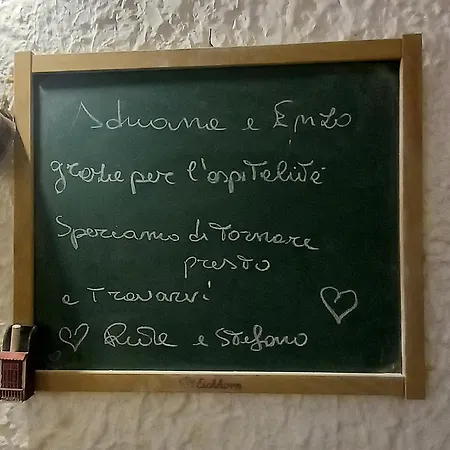 Adriana e Enzo
grazie per l'ospitalità
Speriamo di tornare
presto
e Trovarvi
e Stefano
Eichhorn